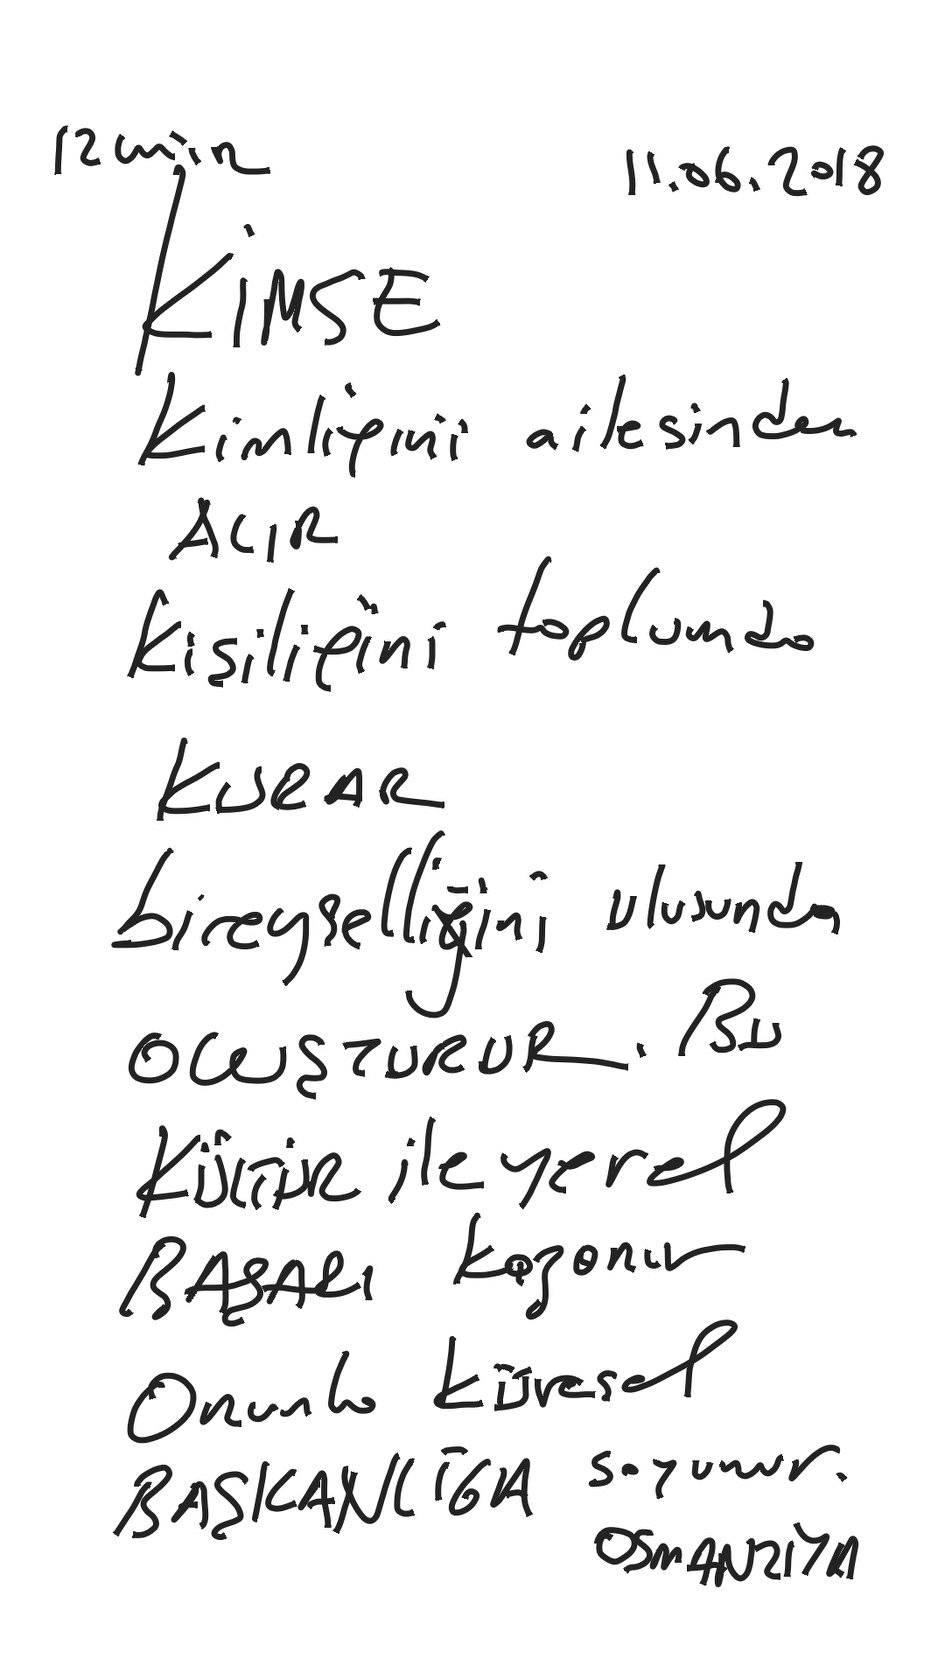 12 min 11.06.2018
KİMSE
Kimliğini ailesinden
ALIR
Kişiliğini toplumda
KURAR
bireyselliğini ulusunda
OLUŞTURUR. Bu
KÜLTÜR ile yerel
BAŞARI kazanır
Onunla küresel
BAŞKANLIĞA soyunur.
OSMANZİYA